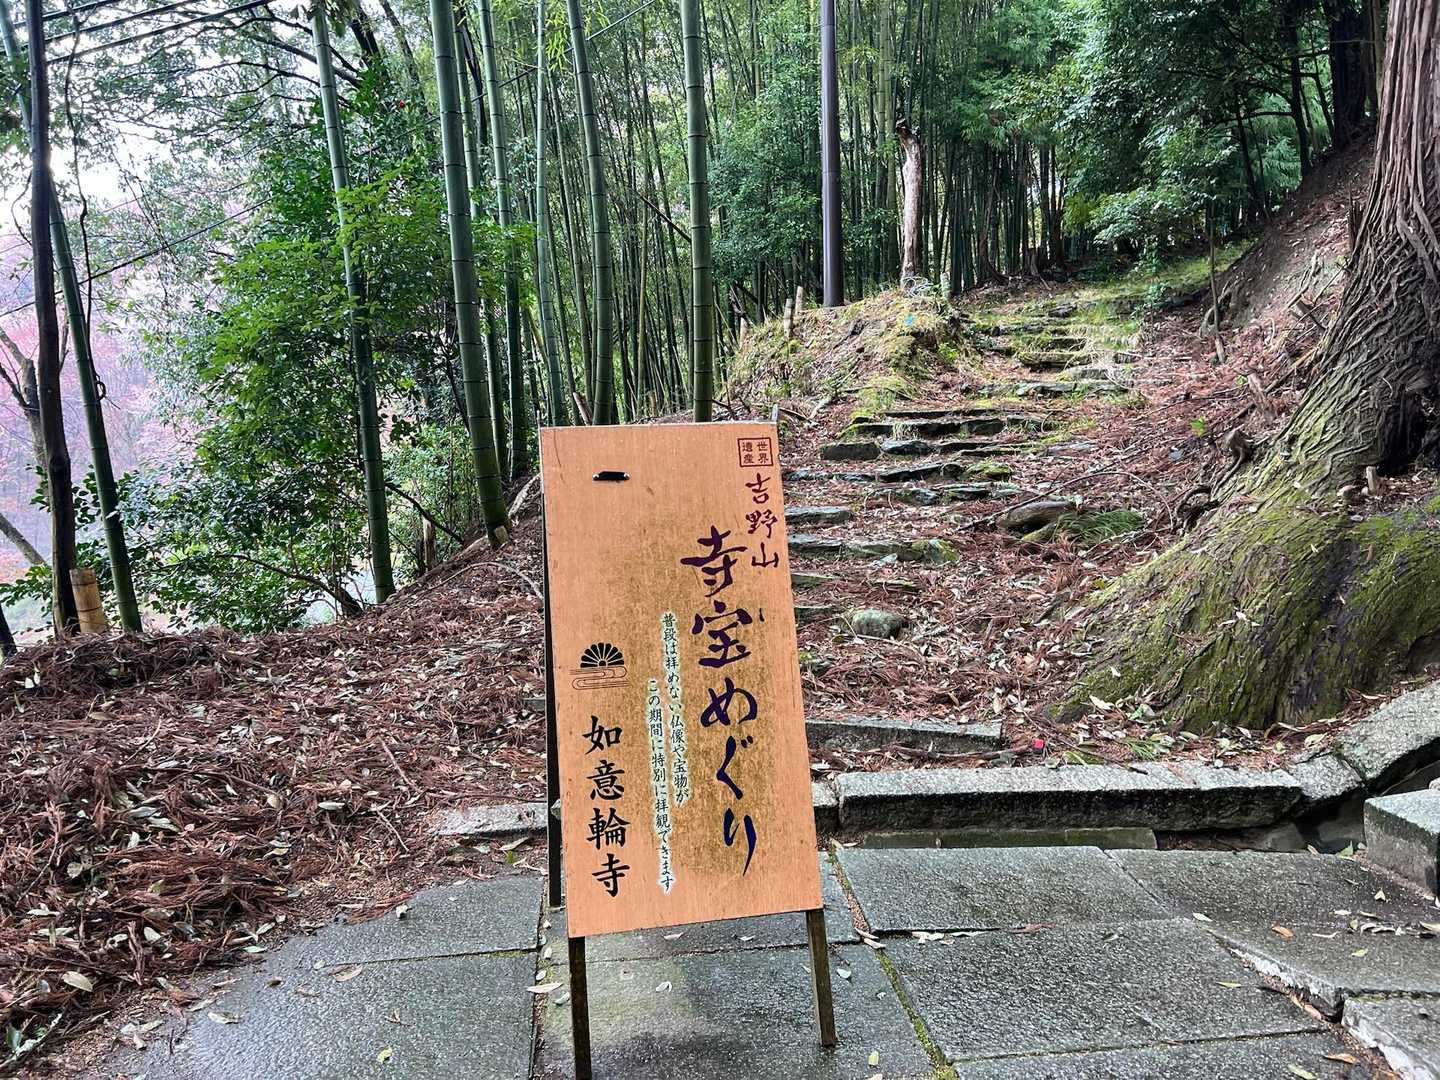 世界
遺産
吉野山
寺宝めぐり
普段は拝めない仏像や宝物が
この期間に特別に拝観できます
如意輪寺